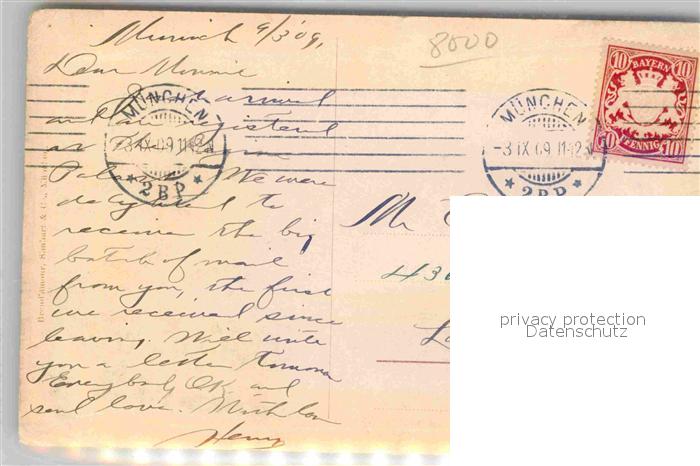 Munich 9/3'09,
8000
Dear Minnie
arrived
and
as
We were
delighted to
receive the big
batch of mail
from you, the first
we received since
leaving. Will write
you a letter tomorrow
Everybody OK and
send love. With love
Henry
MÜNCHEN
-3 IX 09 11-12
2 B.P.
MÜNCHEN
-3 IX 09 11-12
2 B.P.
10 BAYERN 10
10 PFENNIG 10
Mr
430
privacy protection
Datenschutz